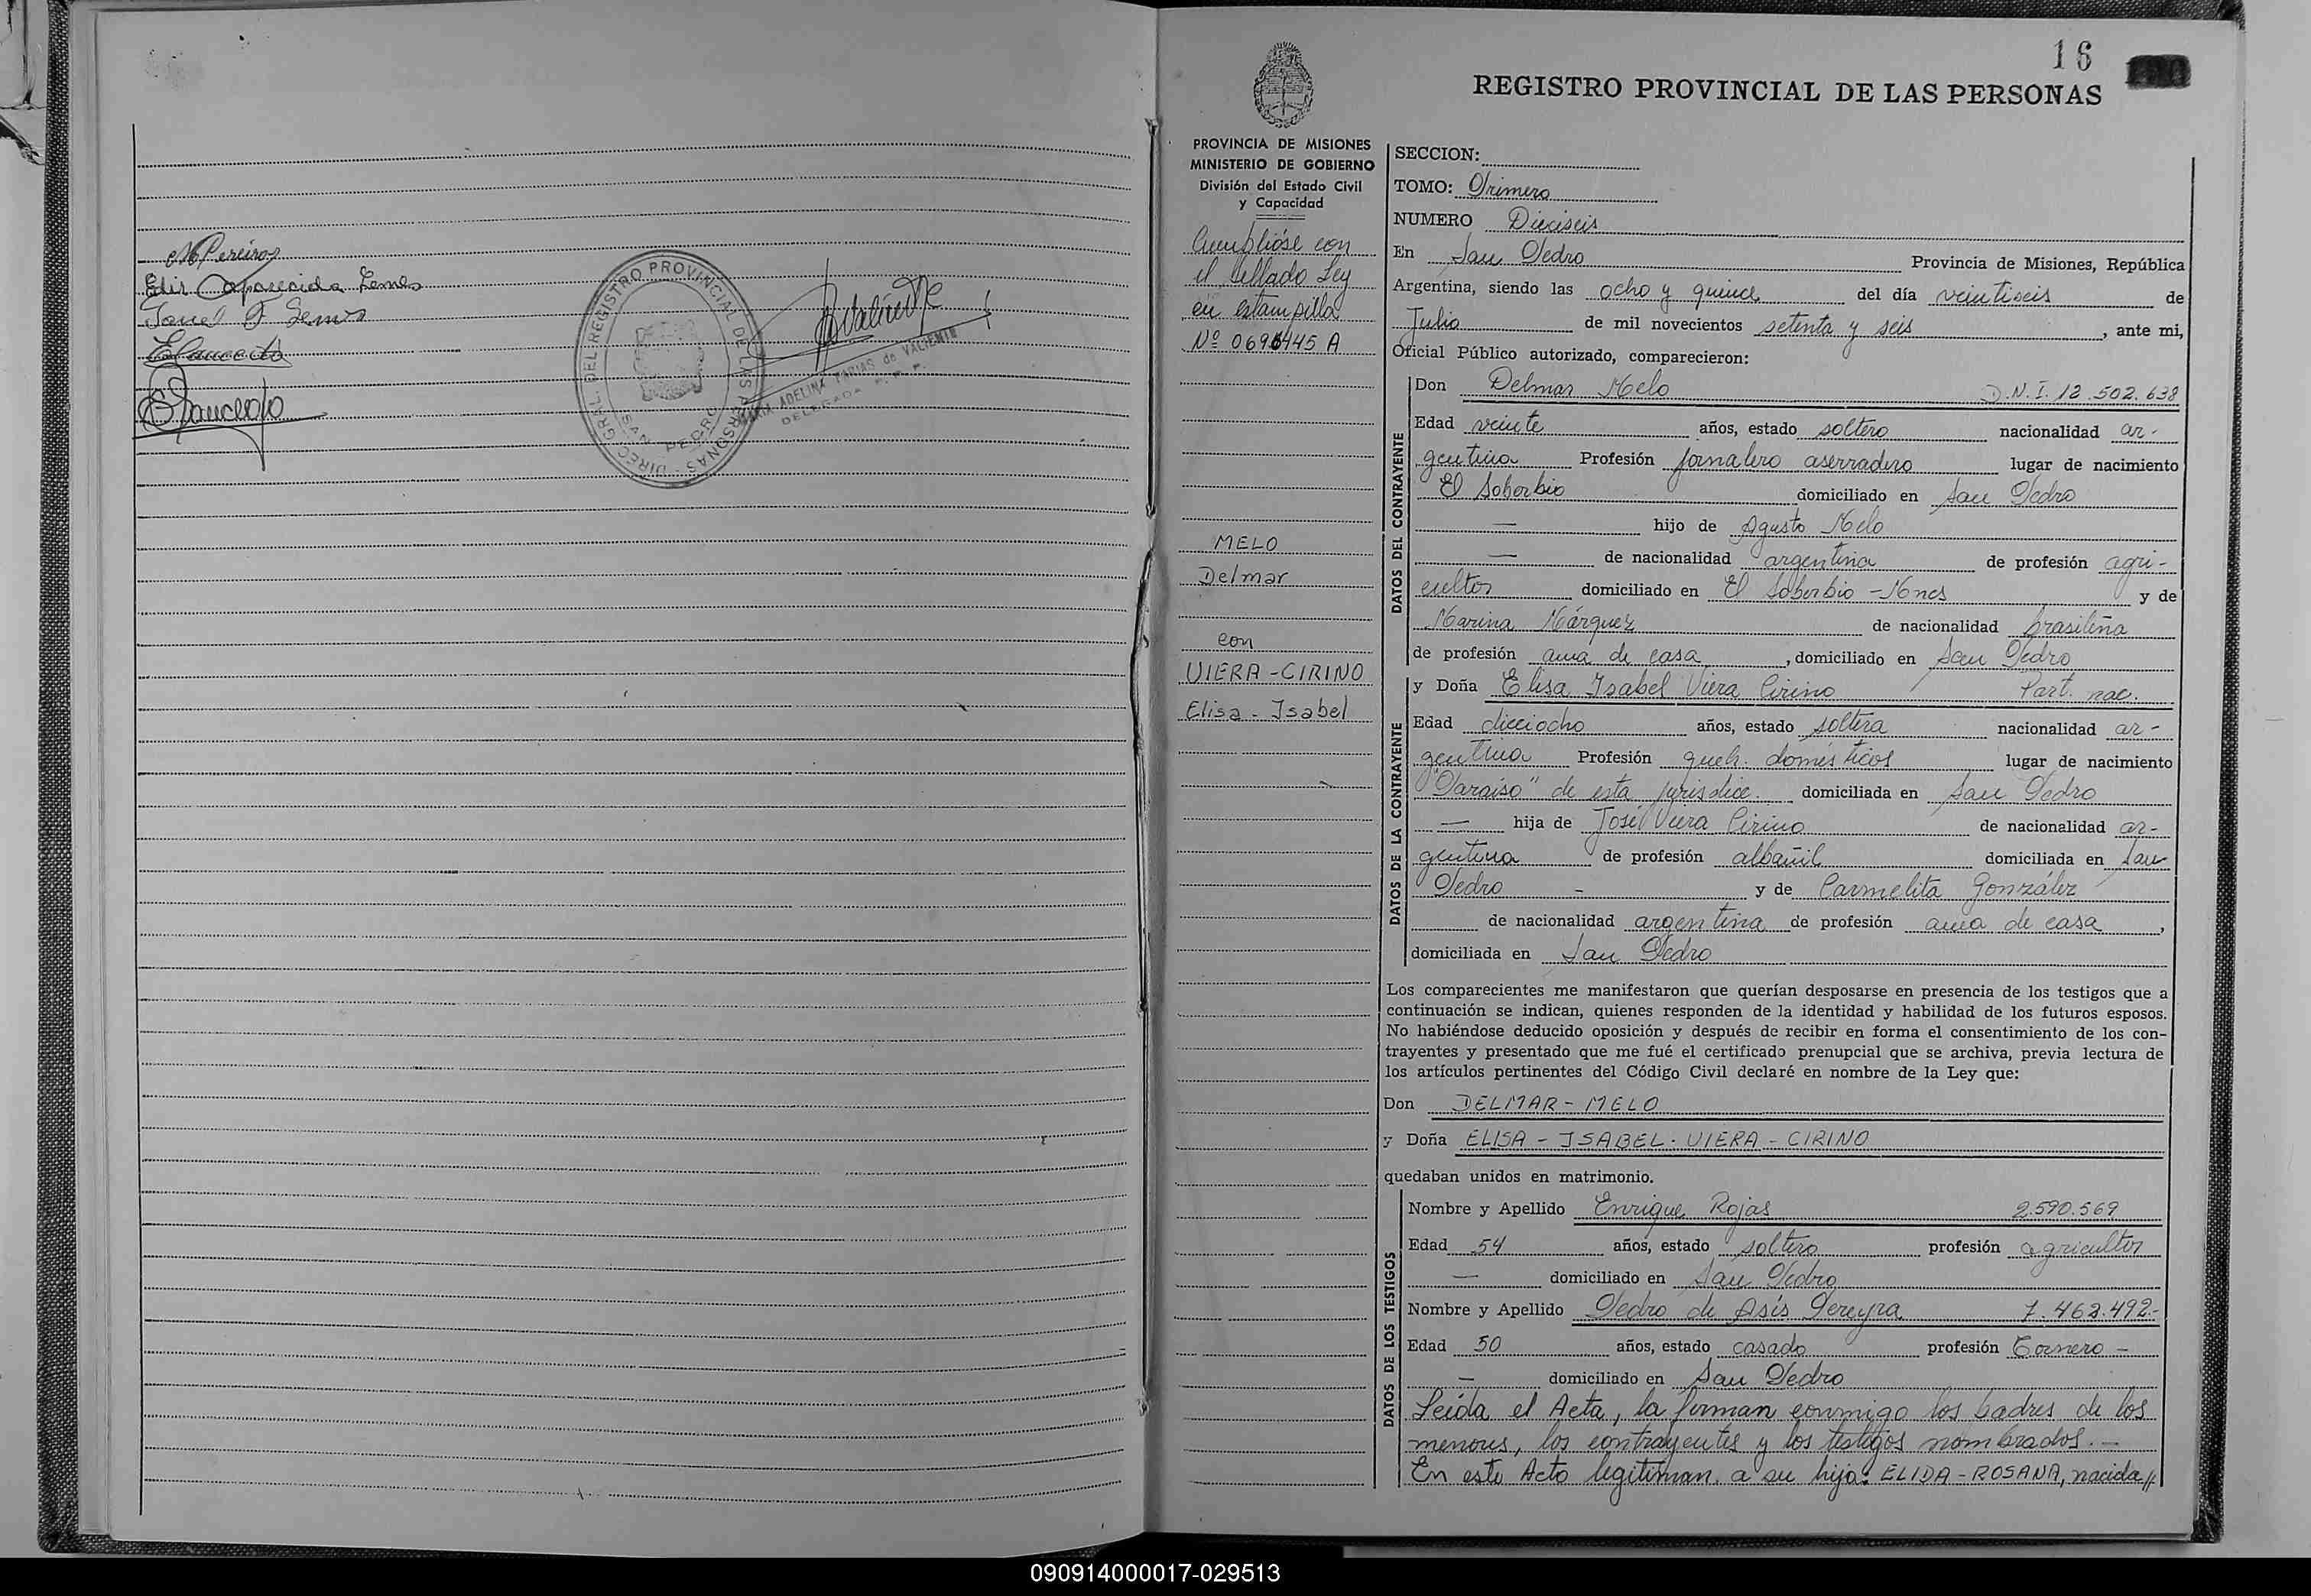 Edir Aparecida Lemes
DIREC. GRAL. DEL REGISTRO PROVINCIAL DE LAS PERSONAS
SAN PEDRO
MARIA ADELINA FARIAS de VALIENTE
DELEGADA
16
REGISTRO PROVINCIAL DE LAS PERSONAS
PROVINCIA DE MISIONES
MINISTERIO DE GOBIERNO
División del Estado Civil
y Capacidad
Cumplióse con
el sellado Ley
en estampilla
MELO
Delmar
con
VIERA-CIRINO
Elisa - Isabel
SECCION:
TOMO: Primero
NUMERO Dieciseis
En San Pedro Provincia de Misiones, República
Argentina, siendo las ocho y quince del día veintiseis de
Julio de mil novecientos setenta y seis, ante mi,
Oficial Público autorizado, comparecieron:
DATOS DEL CONTRAYENTE
Don Delmar Melo D.N.I. 12.502.638
Edad veinte años, estado soltero nacionalidad ar-
gentina Profesión jornalero aserradero lugar de nacimiento
El Soberbio domiciliado en San Pedro
— hijo de Agusto Melo
— de nacionalidad argentina de profesión agri-
cultor domiciliado en El Soberbio - Mnes y de
Marina Márquez de nacionalidad brasileña
de profesión ama de casa, domiciliado en San Pedro
DATOS DE LA CONTRAYENTE
y Doña Elisa Isabel Viera Cirino Part. nac.
Edad dieciocho años, estado soltera nacionalidad ar-
gentina Profesión queh. domésticos lugar de nacimiento
"Paraiso" de esta jurisdicc. domiciliada en San Pedro
— hija de José Viera Cirino de nacionalidad ar-
gentina de profesión albañil domiciliada en San
Pedro - y de Carmelita González
de nacionalidad argentina de profesión ama de casa,
domiciliada en San Pedro
Los comparecientes me manifestaron que querían desposarse en presencia de los testigos que a
continuación se indican, quienes responden de la identidad y habilidad de los futuros esposos.
No habiéndose deducido oposición y después de recibir en forma el consentimiento de los con-
trayentes y presentado que me fué el certificado prenupcial que se archiva, previa lectura de
los artículos pertinentes del Código Civil declaré en nombre de la Ley que:
Don DELMAR - MELO
y Doña ELISA - ISABEL - VIERA - CIRINO
quedaban unidos en matrimonio.
DATOS DE LOS TESTIGOS
Nombre y Apellido Enrique Rojas 2.590.569
Edad 54 años, estado soltero profesión agricultor
— domiciliado en San Pedro
Nombre y Apellido Pedro de Asís Pereyra 7.462.492.-
Edad 50 años, estado casado profesión Tornero -
— domiciliado en San Pedro
Leída el Acta, la firman conmigo los padres de los
menores, los contrayentes y los testigos nombrados.-
En este Acto legitiman a su hija: ELIDA - ROSANA, nacida//
090914000017-029513